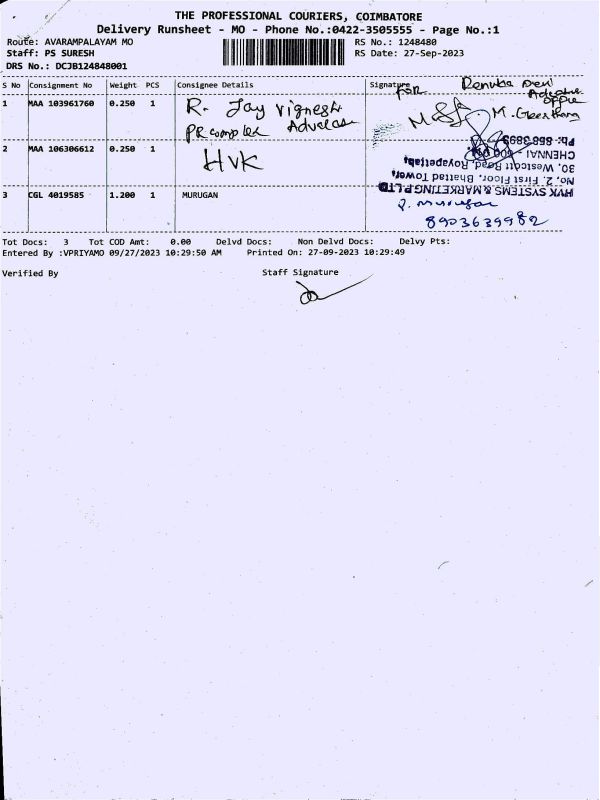 THE PROFESSIONAL COURIERS, COIMBATORE
Delivery Runsheet - MO - Phone No.:0422-3505555 - Page No.:1
Route: AVARAMPALAYAM MO RS No.: 1248480
Staff: PS SURESH RS Date: 27-Sep-2023
DRS No.: DCJB124848001
S No Consignment No Weight PCS Consignee Details Signature
For Renuka Devi
Advocate
office
1 MAA 103961760 0.250 1 R. Jay Vignesh
PR complex Advocate
M. 
2 MAA 106306612 0.250 1 HVK
HVK SYSTEMS & MARKETING P LTD
No. 2, First Floor, Bhattad Tower,
30, Westcott Road, Royapettah,
CHENNAI
3 CGL 4019585 1.200 1 MURUGAN
P. Murugan
8903639982
Tot Docs: 3 Tot COD Amt: 0.00 Delvd Docs: Non Delvd Docs: Delvy Pts:
Entered By :VPRIYAMO 09/27/2023 10:29:50 AM Printed On: 27-09-2023 10:29:49
Verified By Staff Signature